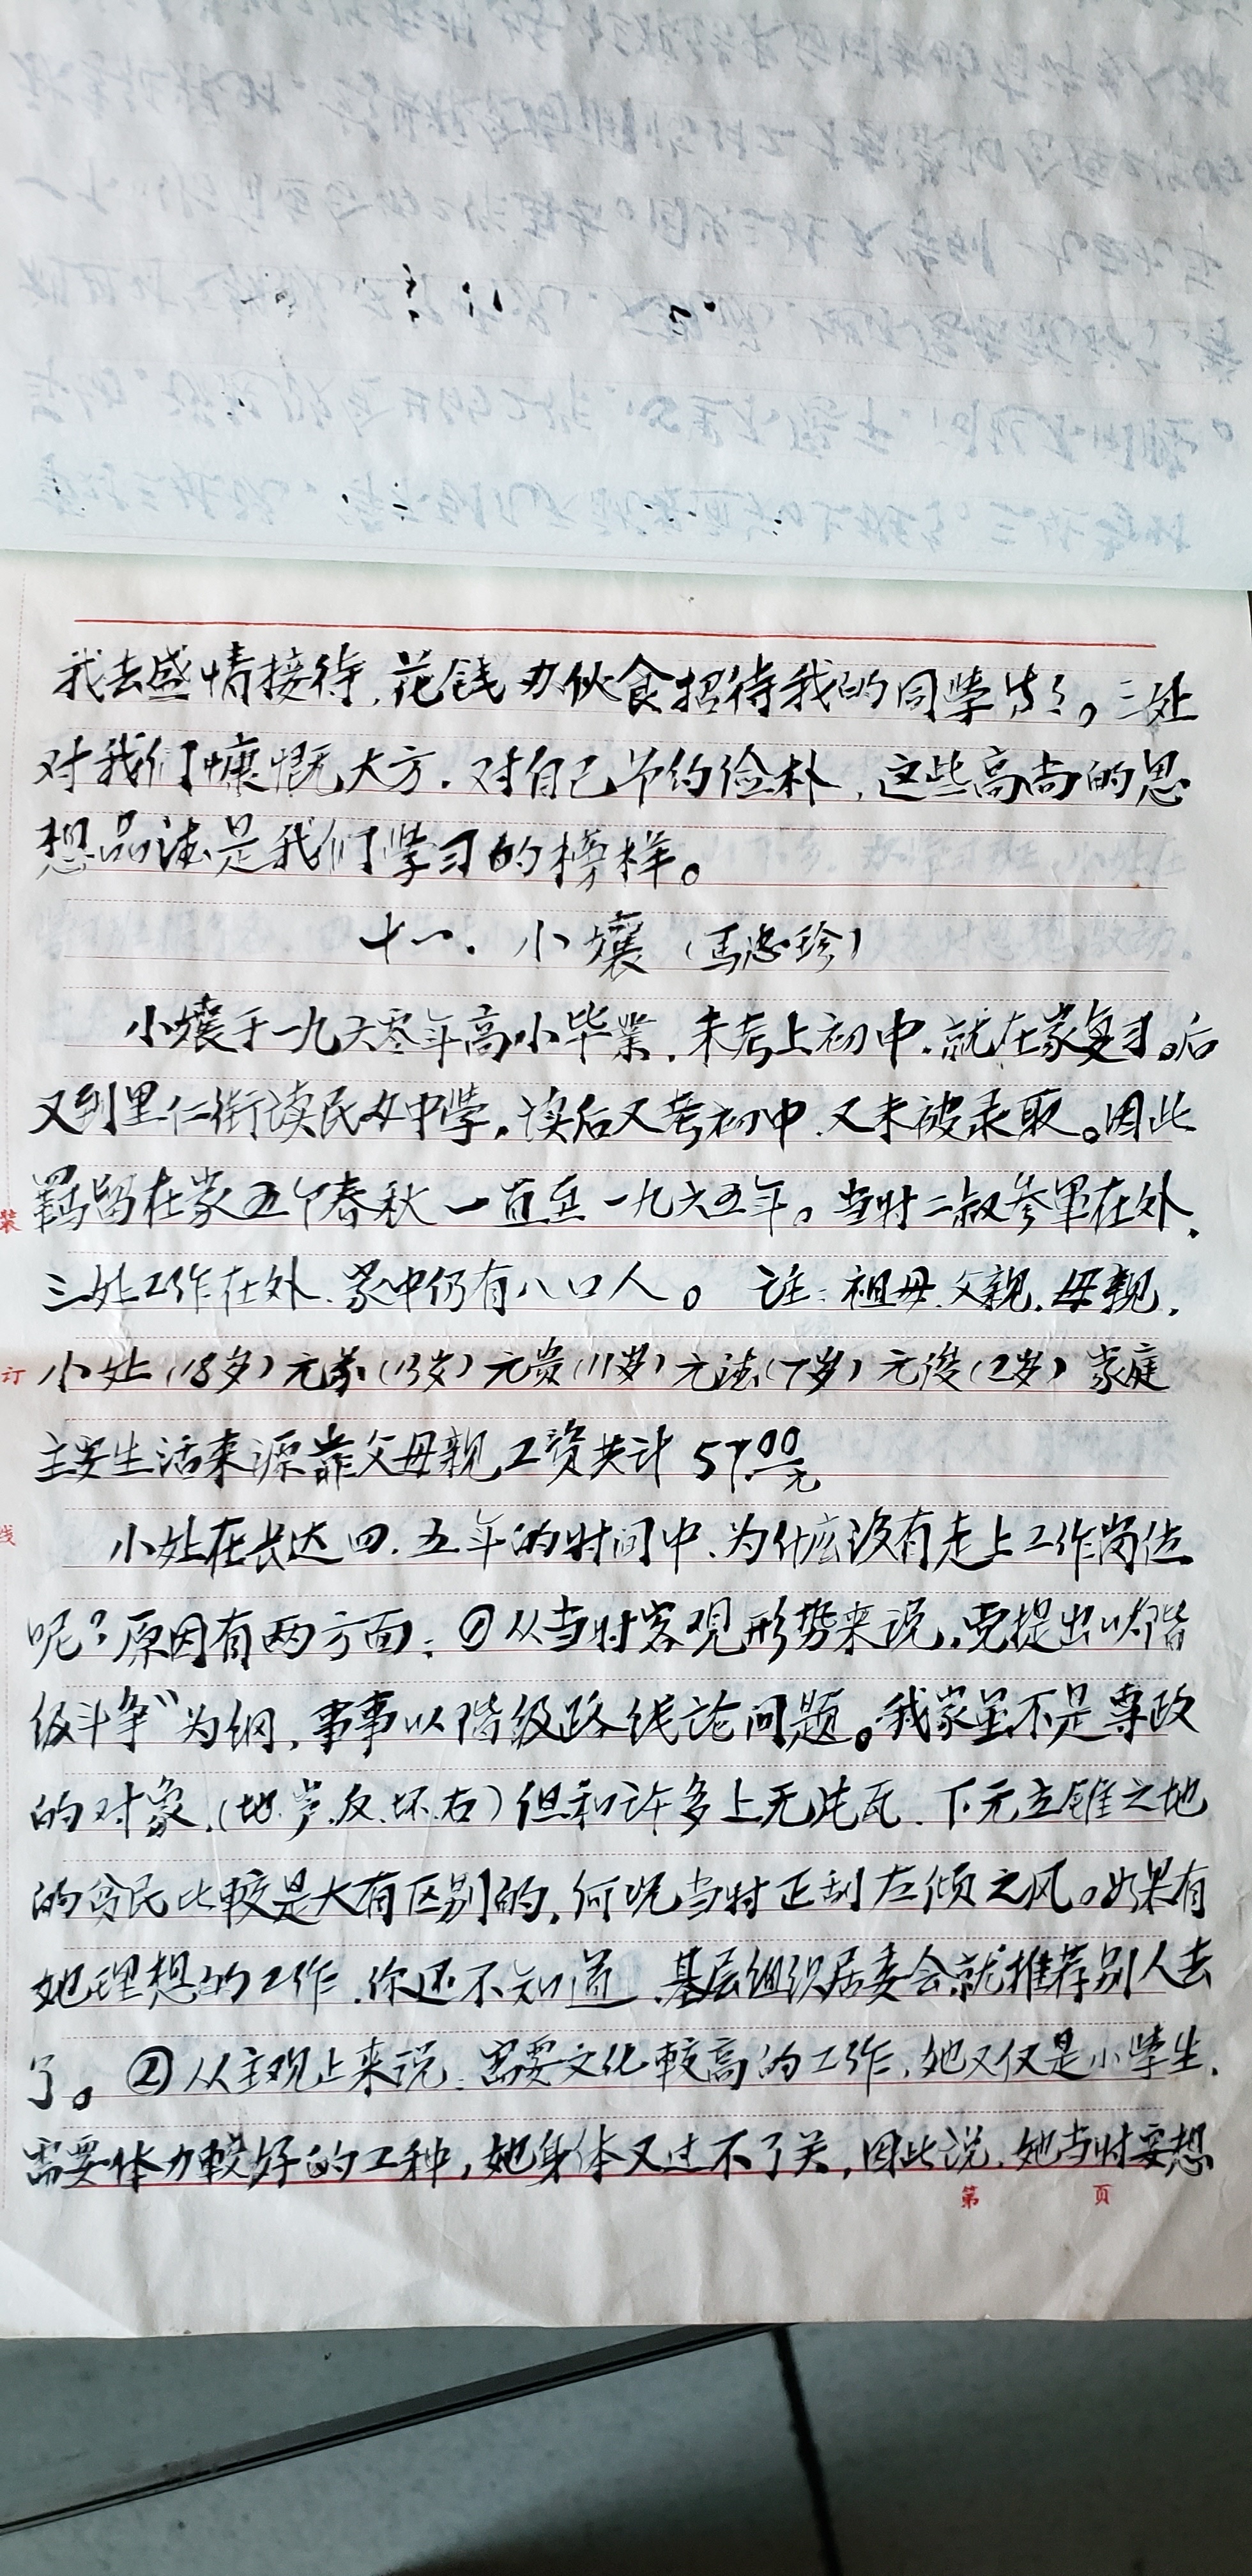 我去盛情接待，花钱办伙食招待我的同学们。三处
对我们慷慨大方．对自己节约俭朴，这些高尚的思
想品法是我们学习的榜样。
十一．小孃（马忠珍）
小孃于一九六零年高小毕业．未考上初中．就在家复习。后
又到里仁街读民办中学．读后又考初中．又未被录取。因此
羁留在家五个春秋一直至一九六五年。当时二叔参军在外．
三处工作在外．家中仍有八口人。注：祖母．父亲．母亲．
小处（18岁）元（13岁）元贵（11岁）元法（7岁）元俊（2岁）家庭
主要生活来源靠父母亲工资共计57.00元
小处在长达四．五年的时间中．为什么没有走上工作岗位
呢？原因有两方面：①从当时客观形势来说，党提出以“阶
级斗争”为纲，事事以阶级路线论问题。我家虽不是专政
的对象．（地．富．反．坏．右）但和许多上无片瓦．下无立锥之地
的贫民比較是大有区别的，何况当时正刮左倾之风。如果有
她理想的工作．你还不知道．基层组织居委会就推荐别人去
了。②从主观上来说：需要文化較高的工作，她又仅是小学生．
需要体力較好的工种，她身体又过不了关，因此说．她当时要想
第 页
装
订
线